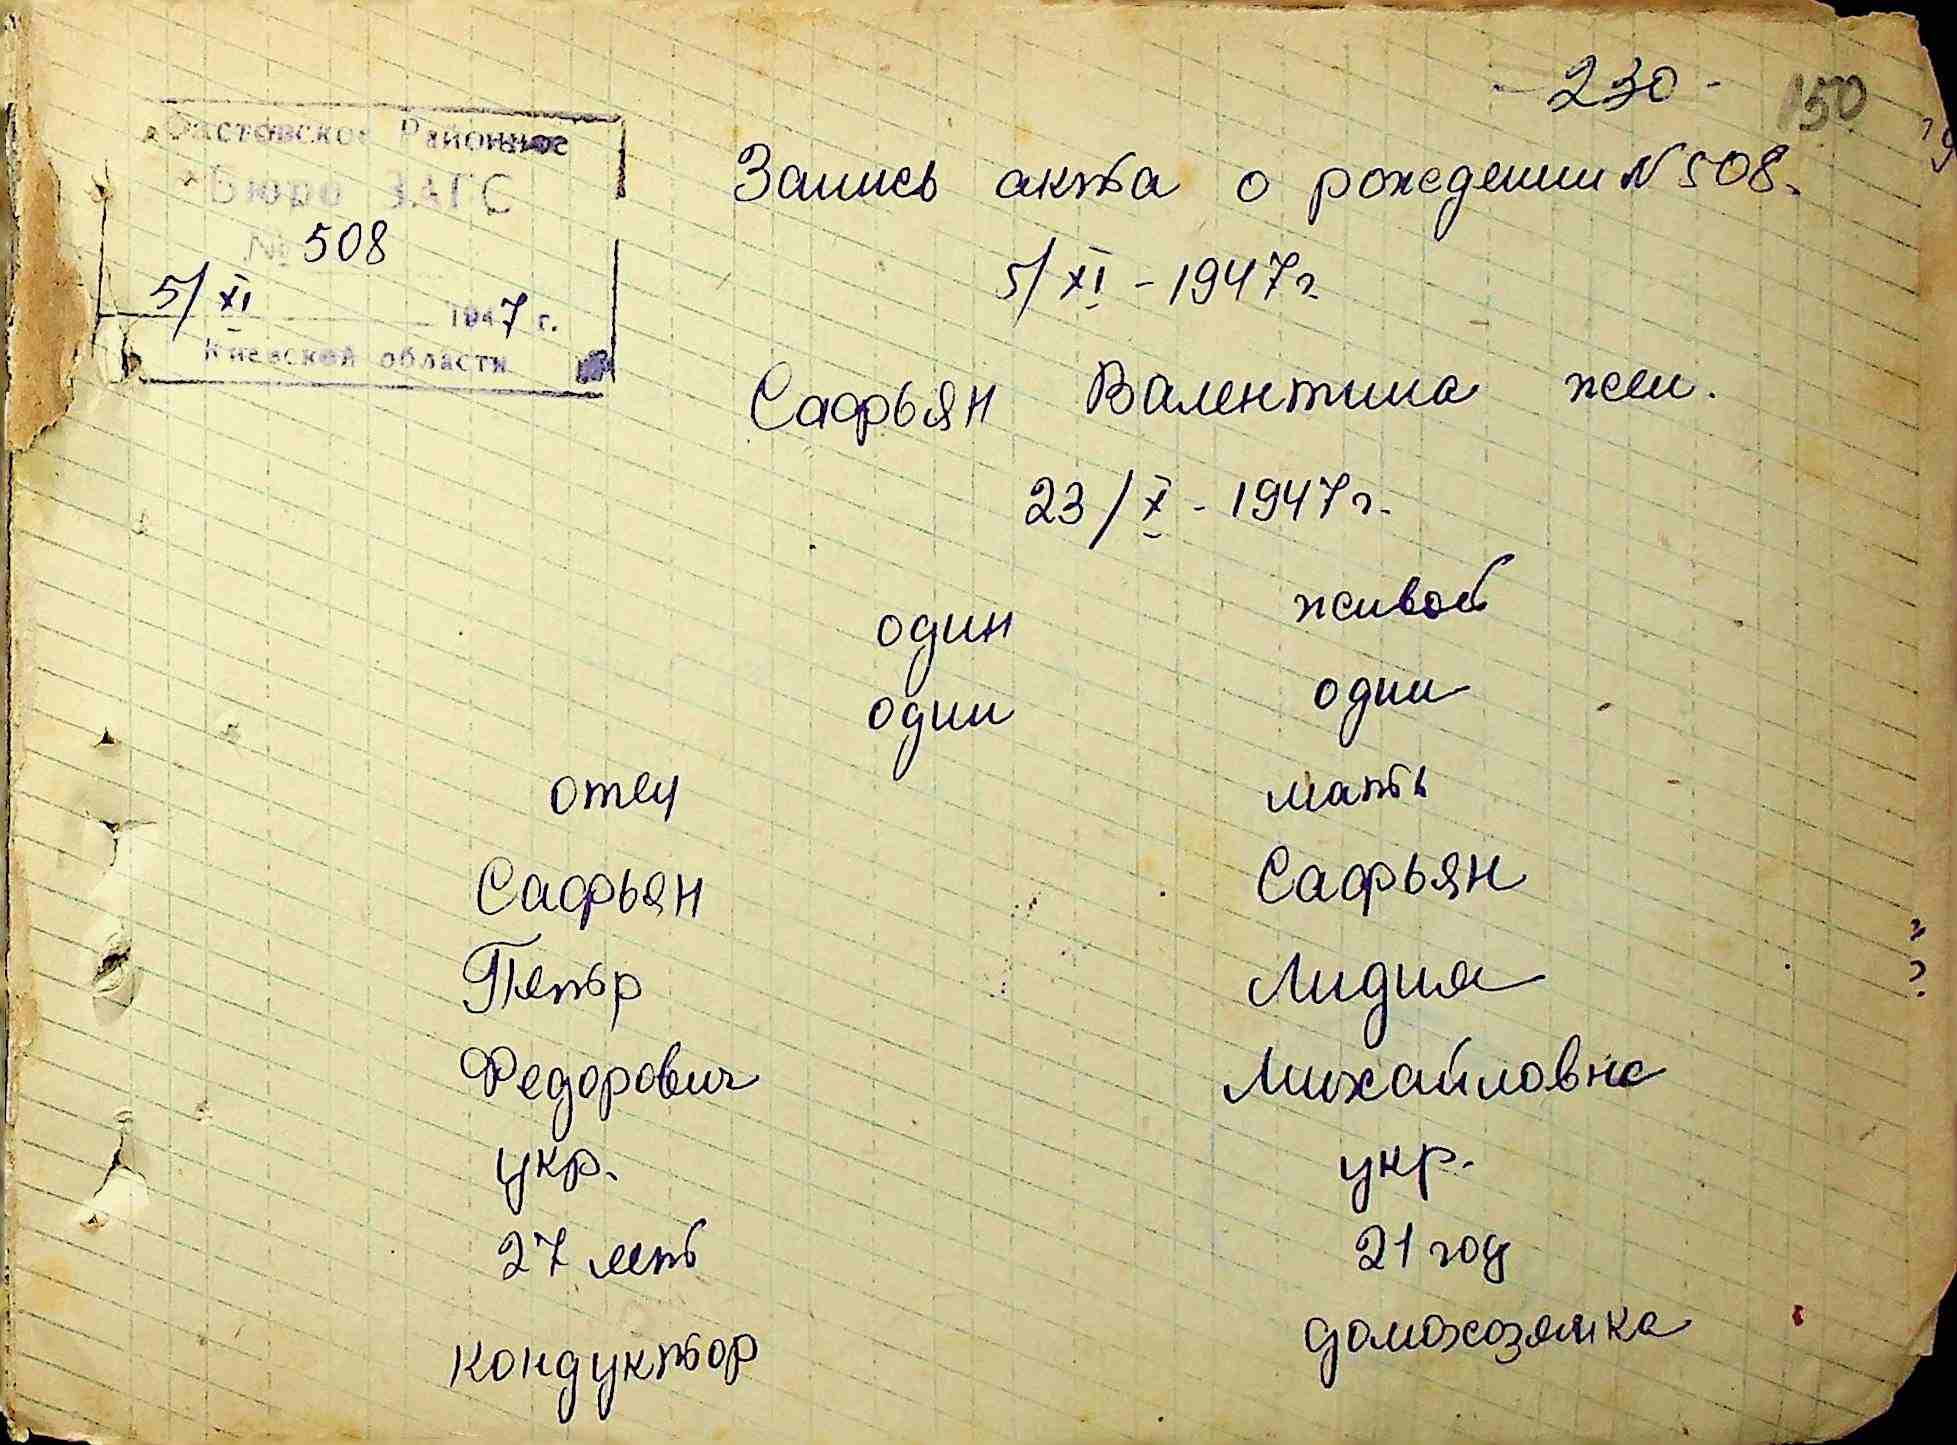 - 230 - 150
Фастовское Районное
Бюро ЗАГС
№ 508
5/XI 1947 г.
Киевской области
Запись акта о рождении N 508.
5/XI - 1947 г.
Сафьян Валентина жен.
23/X - 1947 г.
один живой
один один
отец мать
Сафьян Сафьян
Пётр Лидия
Федорович Михайловна
укр. укр.
27 лет 21 год
кондуктор домохозяйка